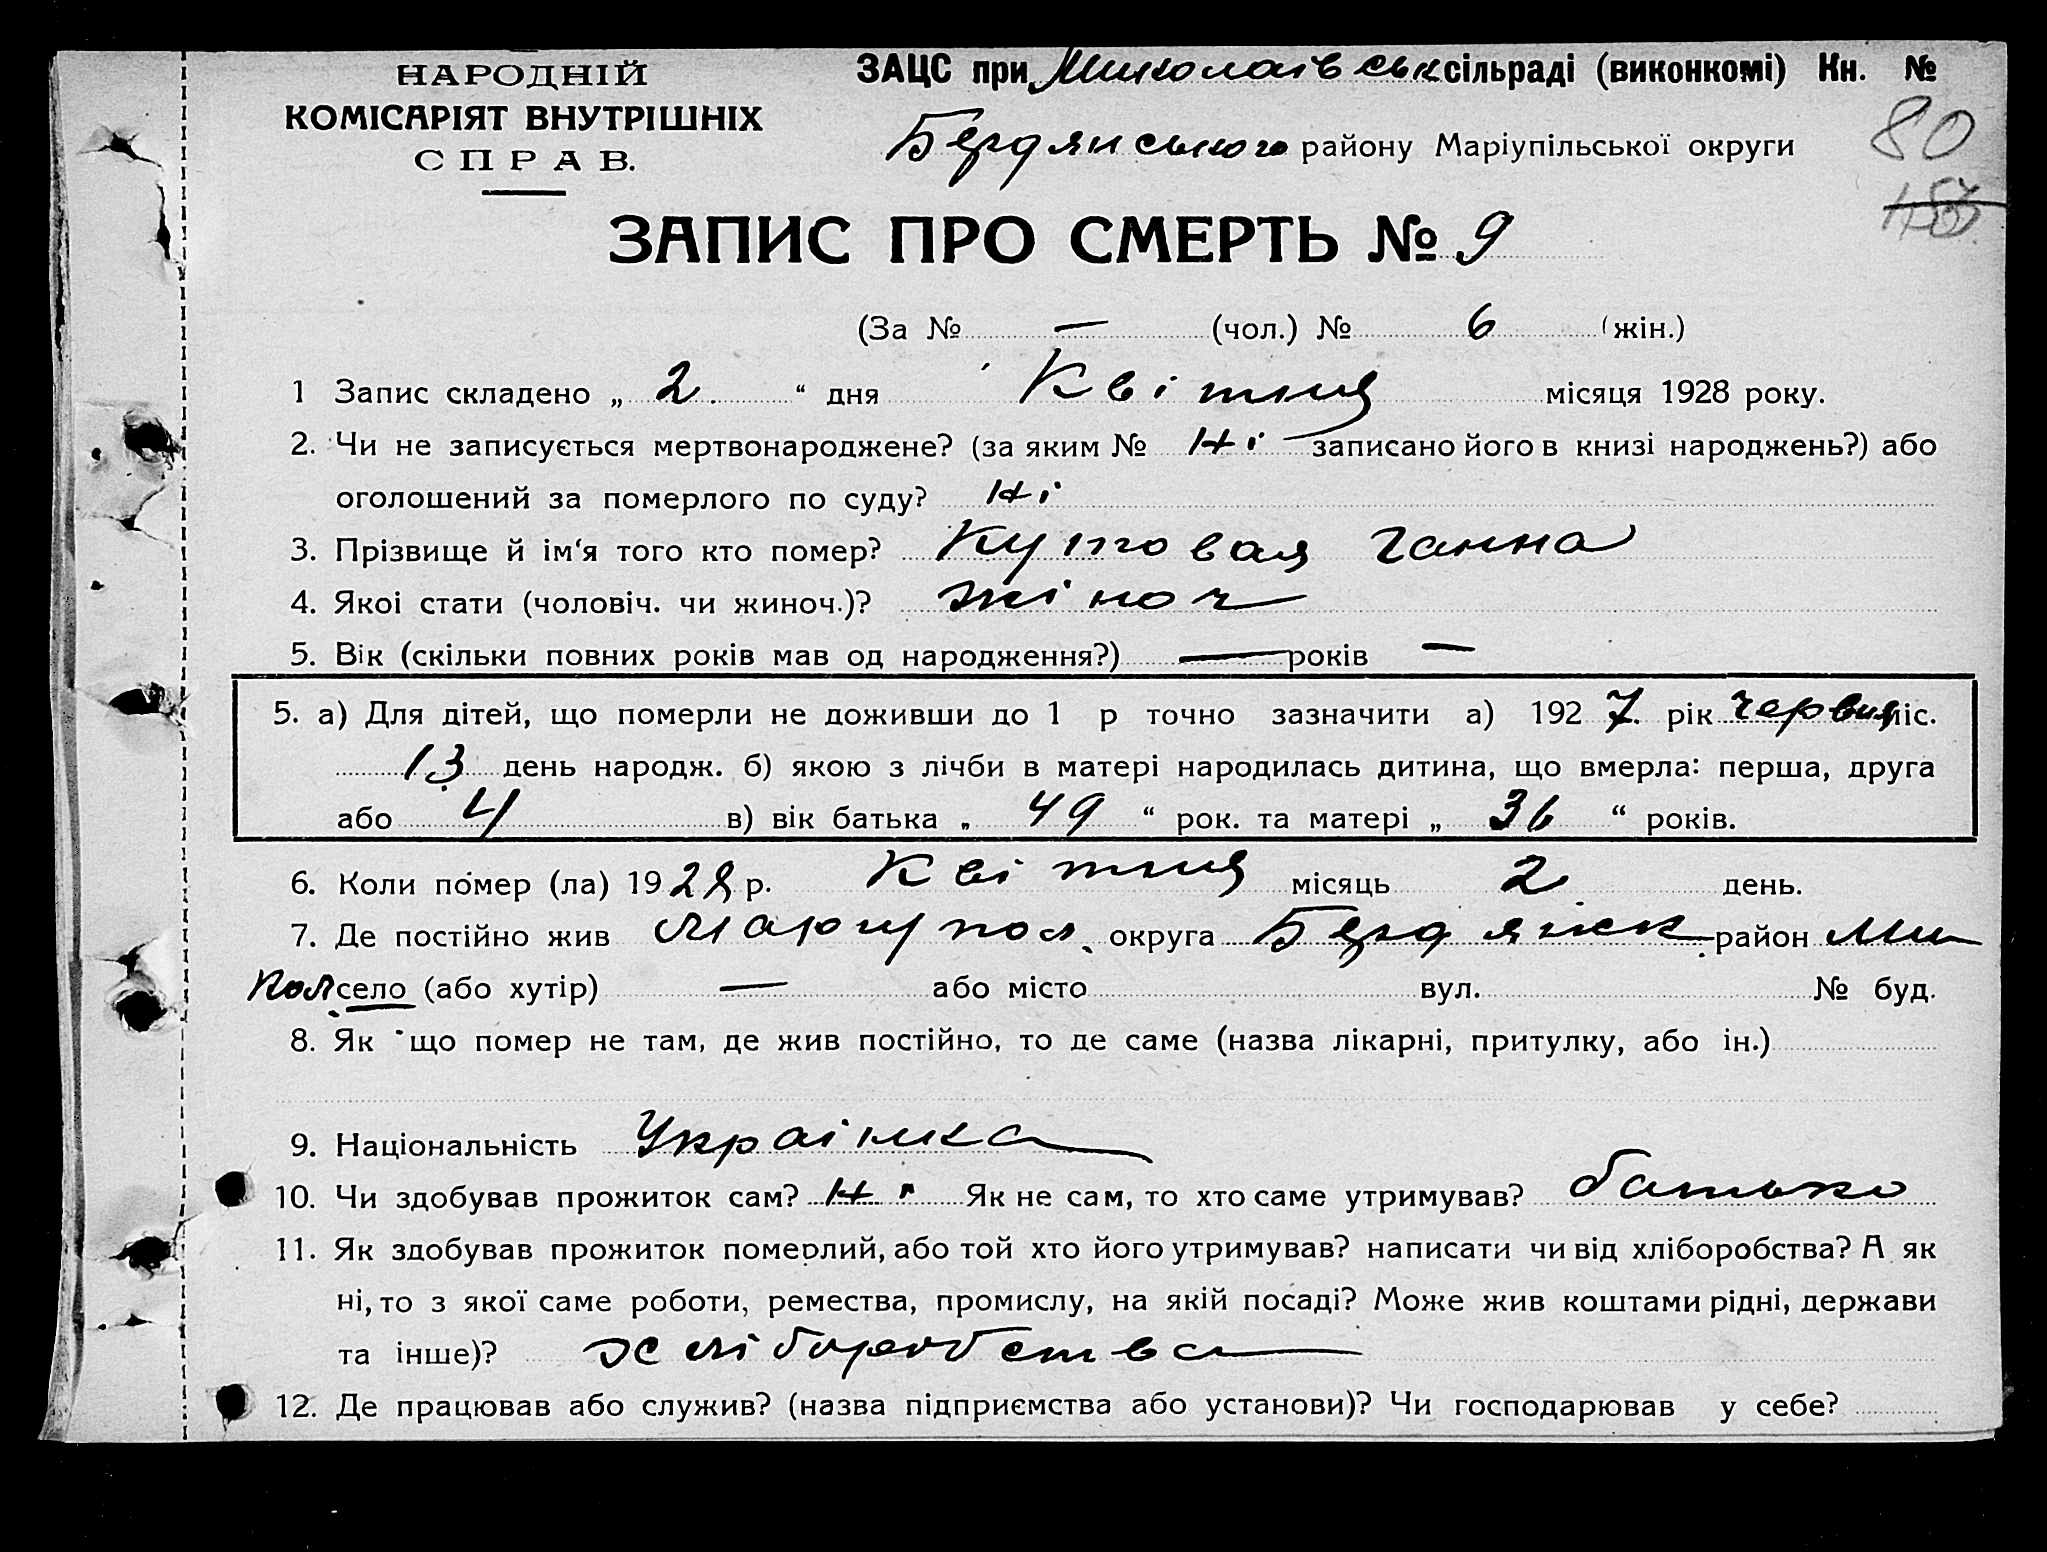 НАРОДНІЙ
КОМІСАРІЯТ ВНУТРІШНІХ
СПРАВ.
ЗАЦС при Миколаівськ сільраді (виконкомі) Кн. №
80
Бердянського району Маріупільської округи
ЗАПИС ПРО СМЕРТЬ № 9
(За № — (чол.) № 6 (жін.)
1 Запис складено „ 2. “ дня Квітня місяця 1928 року.
2. Чи не записується мертвонароджене? (за яким № Ні записано його в книзі народжень?) або
оголошений за померлого по суду? Ні
3. Прізвище й ім‘я того кто помер? Кутовая Ганна
4. Якоі стати (чоловіч. чи жиноч.)? жіноч
5. Вік (скільки повних років мав од народження?) — років —
5. а) Для дітей, що померли не доживши до 1 р точно зазначити а) 1927 рік червня міс.
13 день народж. б) якою з лічби в матері народилась дитина, що вмерла: перша, друга
або 4 в) вік батька „ 49 “ рок. та матері „ 36 “ років.
6. Коли помер (ла) 1928 р. Квітня місяць 2 день.
7. Де постійно жив Маріупол. округа Бердянськ район Ми
кол село (або хутір) — або місто вул. № буд.
8. Як що помер не там, де жив постійно, то де саме (назва лікарні, притулку, або ін.)
9. Національність Українка
10. Чи здобував прожиток сам? Ні Як не сам, то хто саме утримував? батько
11. Як здобував прожиток померлий, або той хто його утримував? написати чи від хліборобства? А як
ні, то з якої саме роботи, ремества, промислу, на якій посаді? Може жив коштами рідні, держави
та інше)? Хліборобства
12. Де працював або служив? (назва підприємства або установи)? Чи господарював у себе?